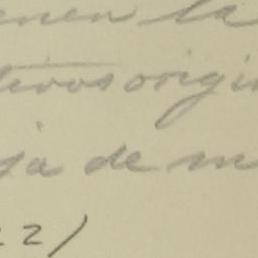 enen la
tivos origin
sia de m
22)